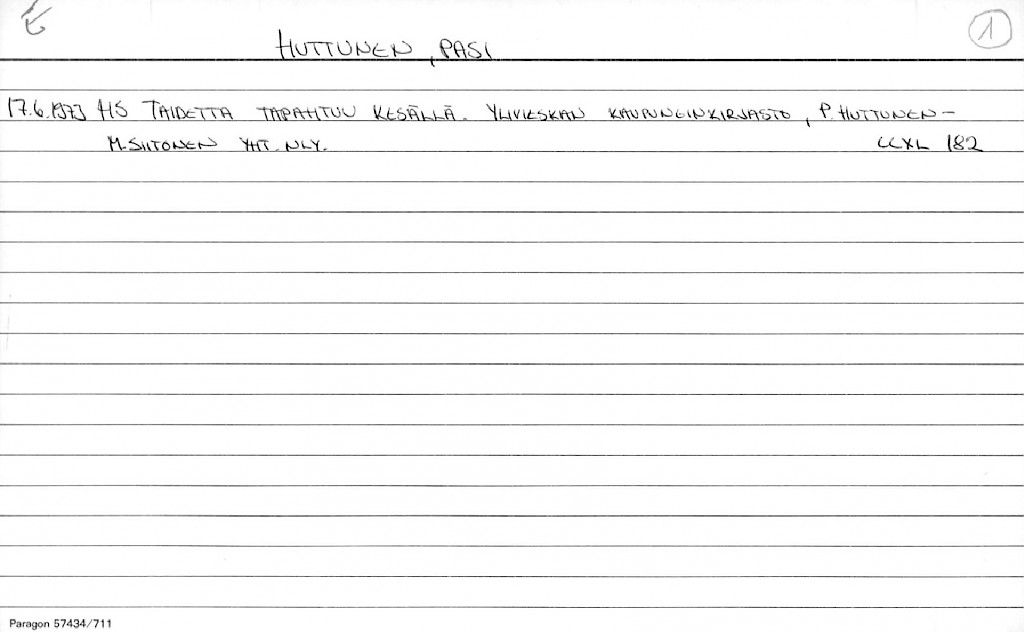 E
1
HUTTUNEN, PASI
17.6.1973 HS TAIDETTA TAPAHTUU KESÄLLÄ. YLIVIESKAN KAUPUNGINKIRJASTO, P. HUTTUNEN-
M. SIITONEN YHT. NLY. CCXL 182
Paragon 57434/711